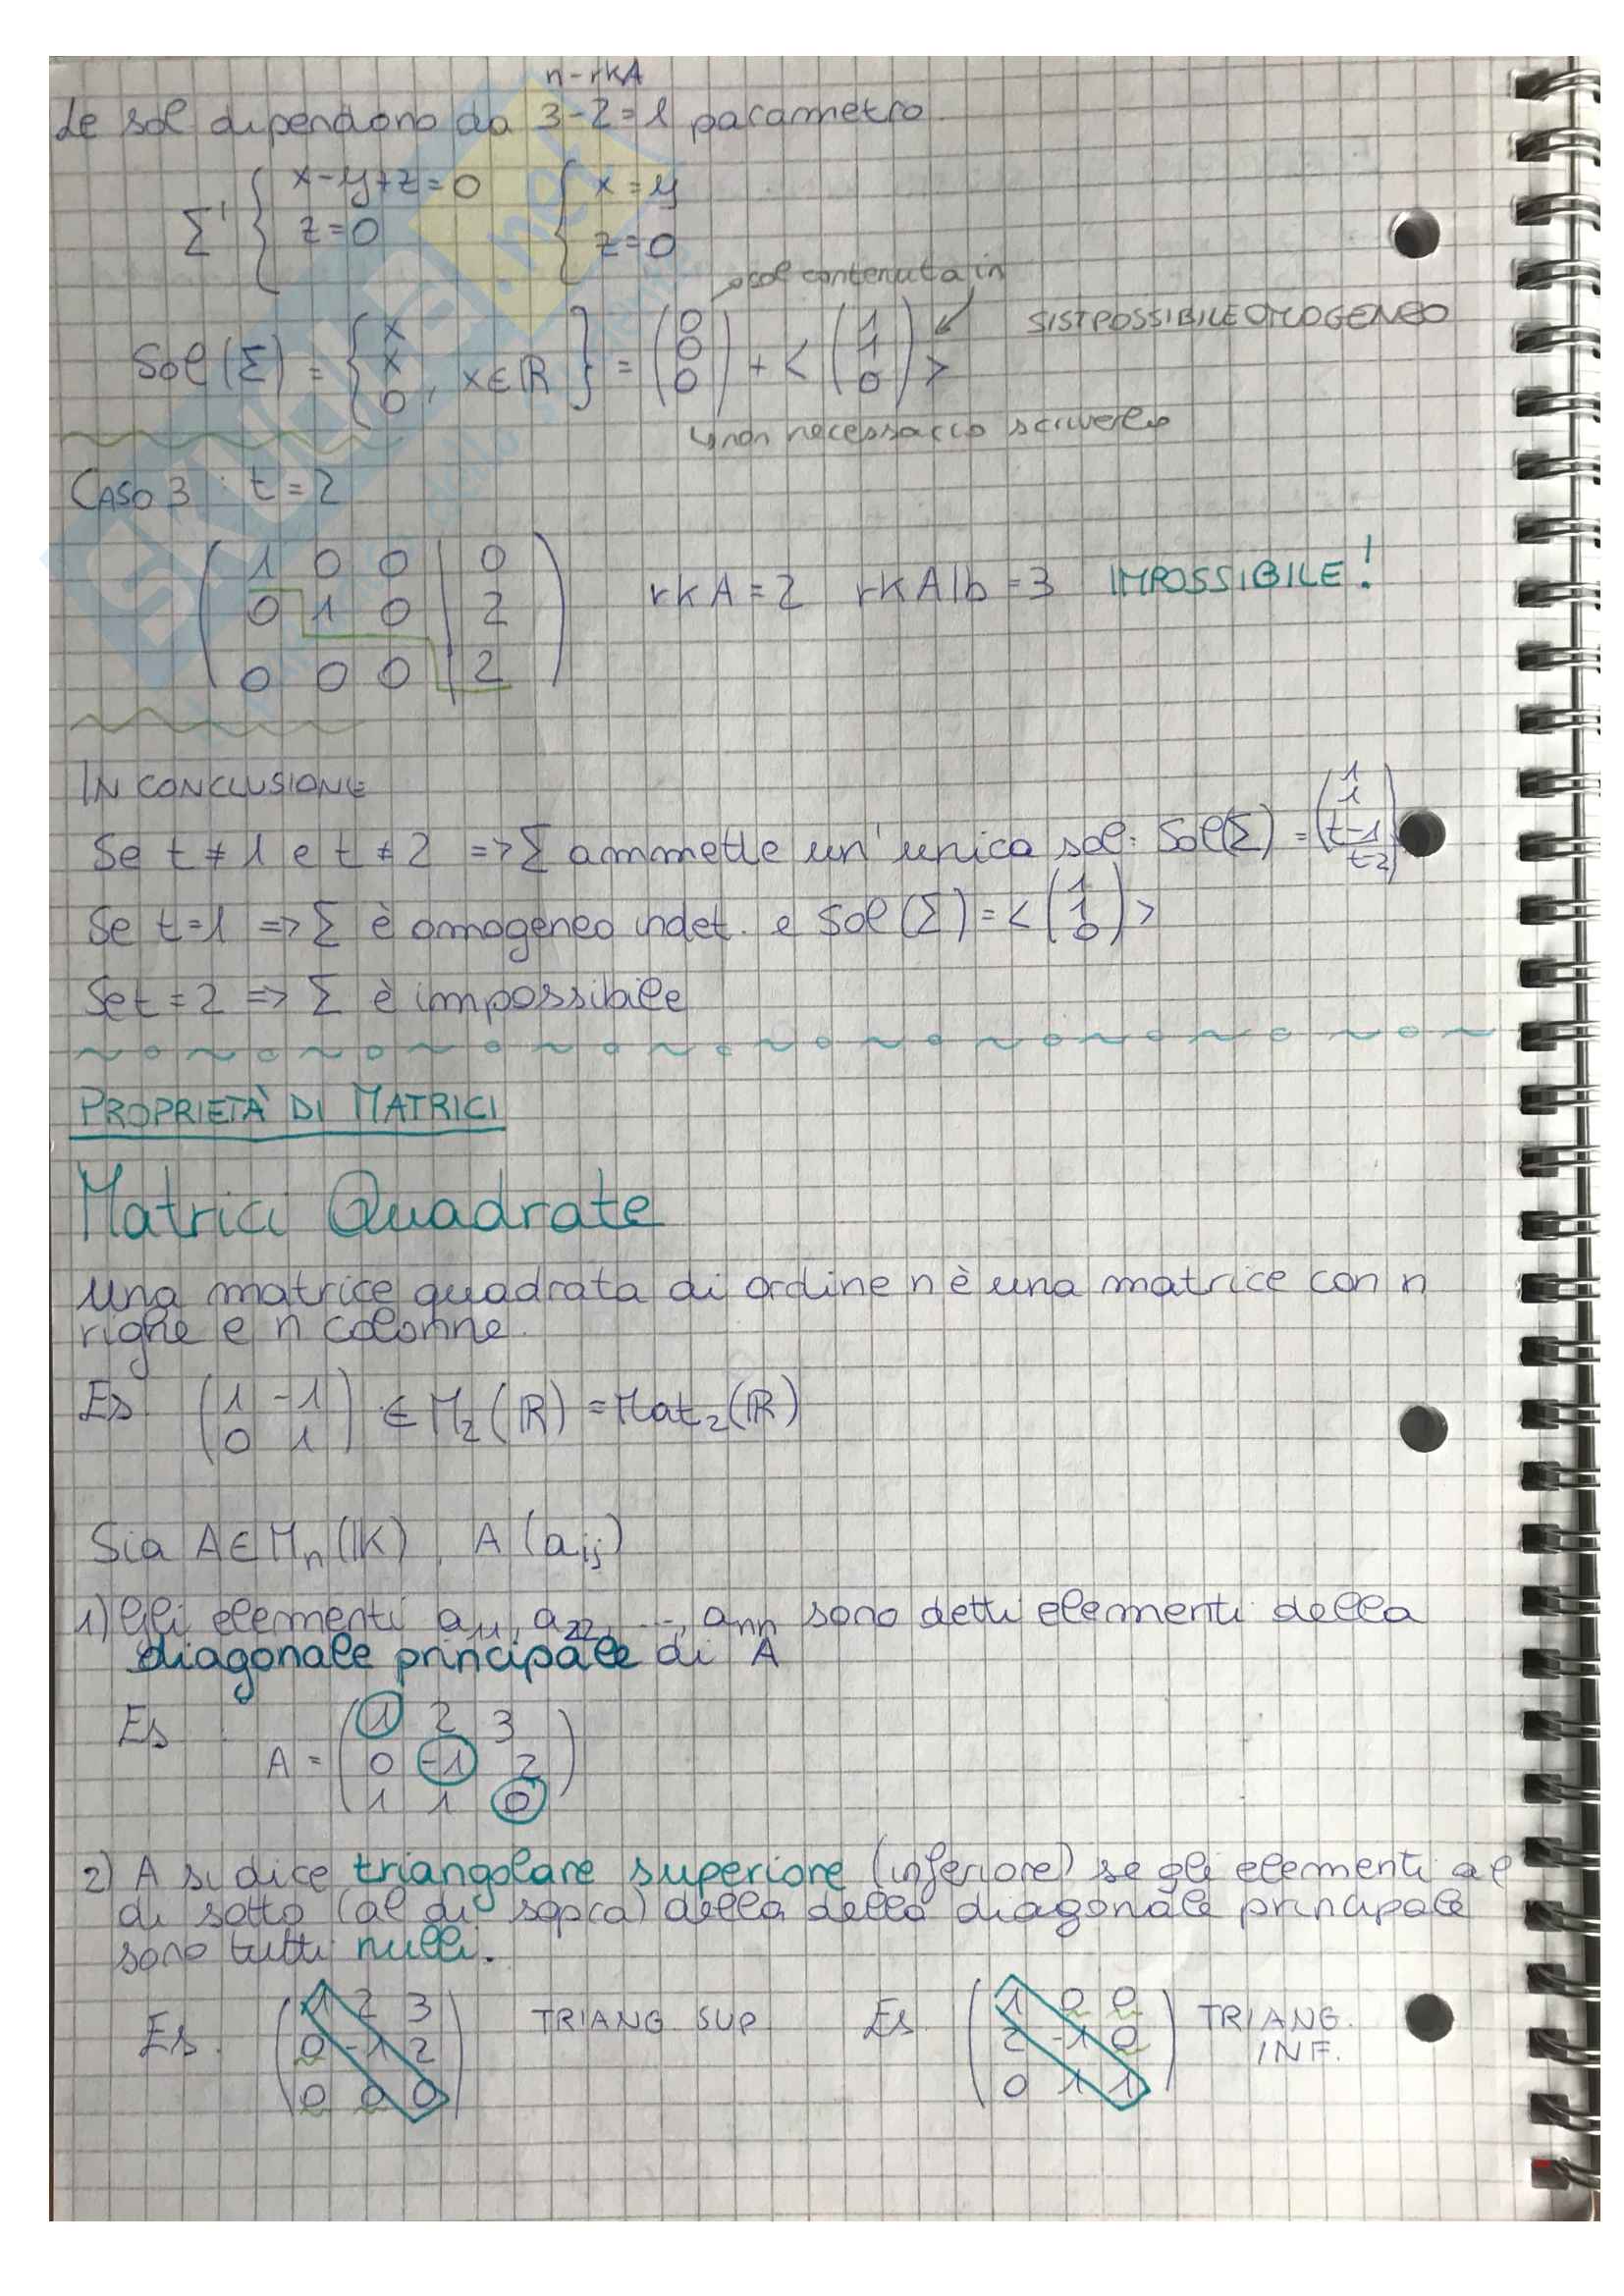 n-rkA
Le sol dipendono da 3-2=1 parametro
Σ' { x-y+z=0 { x=y
z=0 z=0
sol contenuta in
SIST POSSIBILE OMOGENEO
Sol(Σ) = { x x 0 , x∈ℝ } = (0 0 0) + < (1 1 0) >
non necessario scriverlo
CASO 3 : t=2
( 1 0 0 | 0 )
( 0 1 0 | 2 ) rkA=2 rkA|b=3 IMPOSSIBILE!
( 0 0 0 | 2 )
IN CONCLUSIONE
Se t≠1 e t≠2 => Σ ammette un'unica sol: Sol(Σ) = (1 1 t-1/t-2)
Se t=1 => Σ è omogeneo indet. e Sol(Σ)=<(1 1 0)>
Se t=2 => Σ è impossibile
PROPRIETÀ DI MATRICI
Matrici Quadrate
Una matrice quadrata di ordine n è una matrice con n
righe e n colonne.
Es. (1 -1
0 1) ∈ M₂(ℝ) = Mat₂(ℝ)
Sia A∈Mn(K), A(aij)
1) Gli elementi a11, a22, ..., ann sono detti elementi della
diagonale principale di A
Es.
A = ( 1 2 3
0 -1 2
1 1 0 )
2) A si dice triangolare superiore (inferiore) se gli elementi al
di sotto (al di sopra) della della diagonale principale
sono tutti nulli.
Es. ( 1 2 3
0 -1 2
0 0 0 ) TRIANG SUP
Es. ( 1 0 0
2 -1 0
0 1 1 ) TRIANG.
INF.